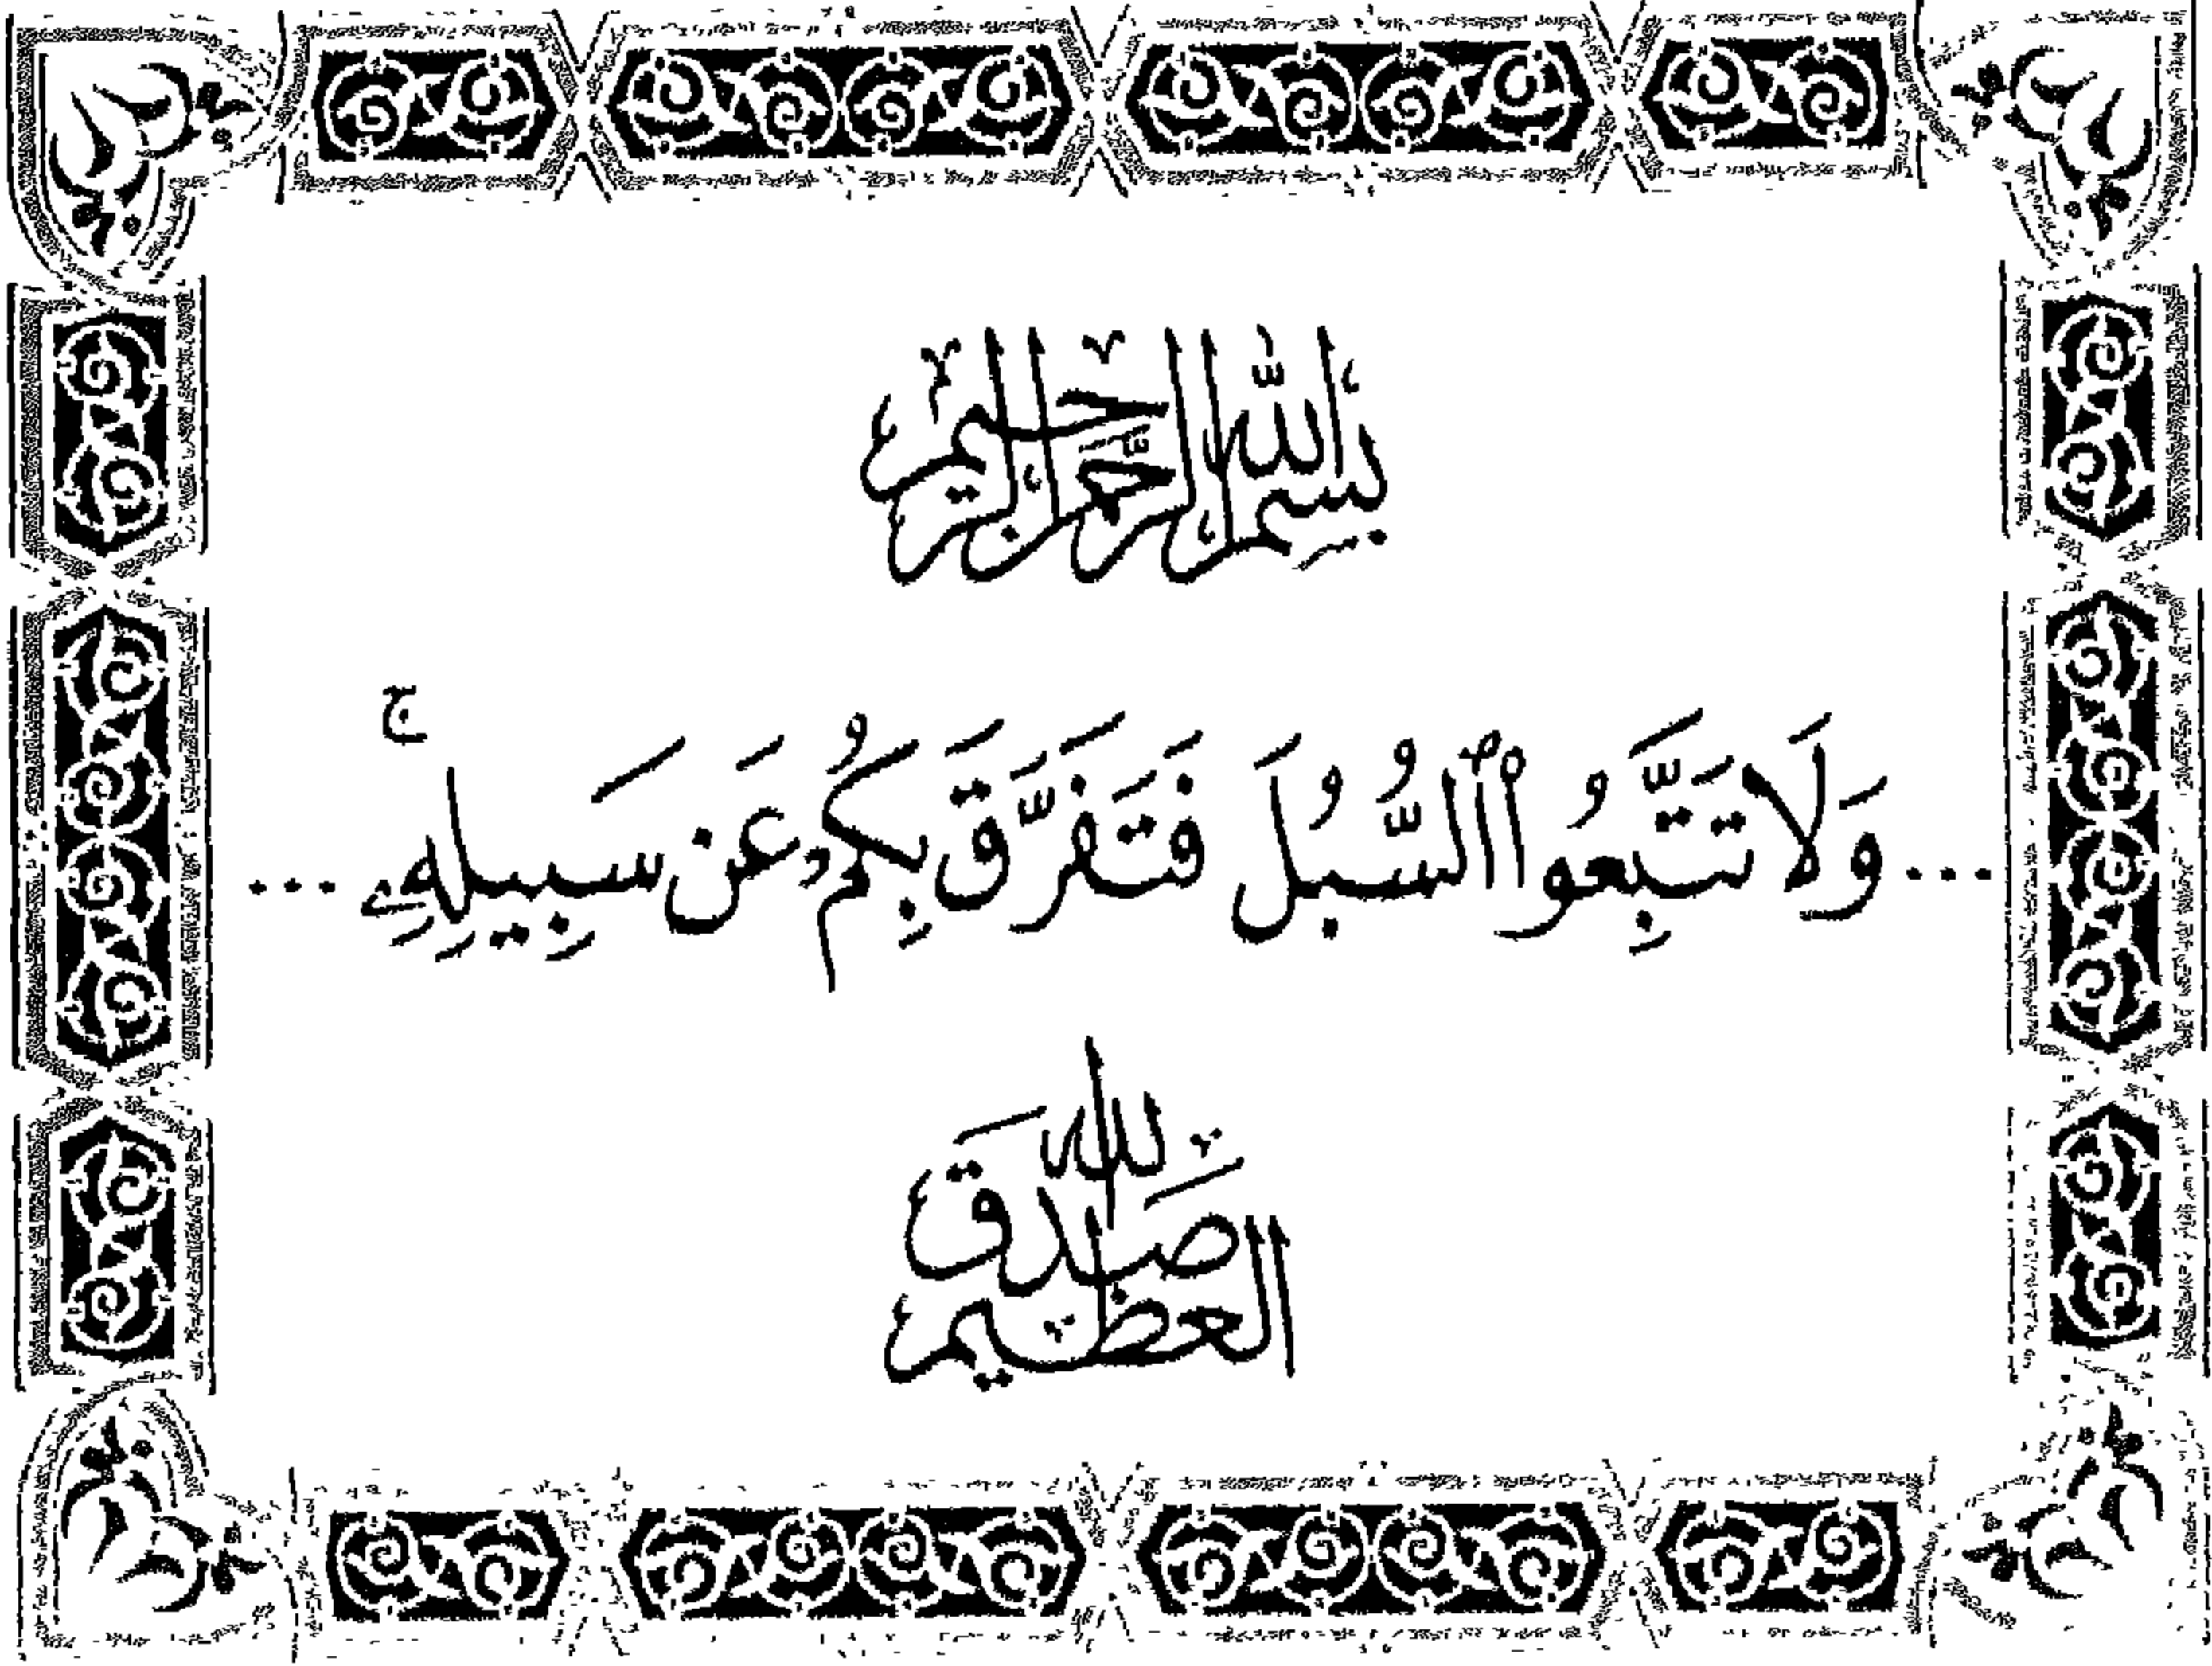 بسم الله الرحمن الرحيم
... وَلَا تَتَّبِعُوا۟ ٱلسُّبُلَ فَتَفَرَّقَ بِكُمْ عَن سَبِيلِهِۦ ۚ ...
صَدَقَ الله
العظيم